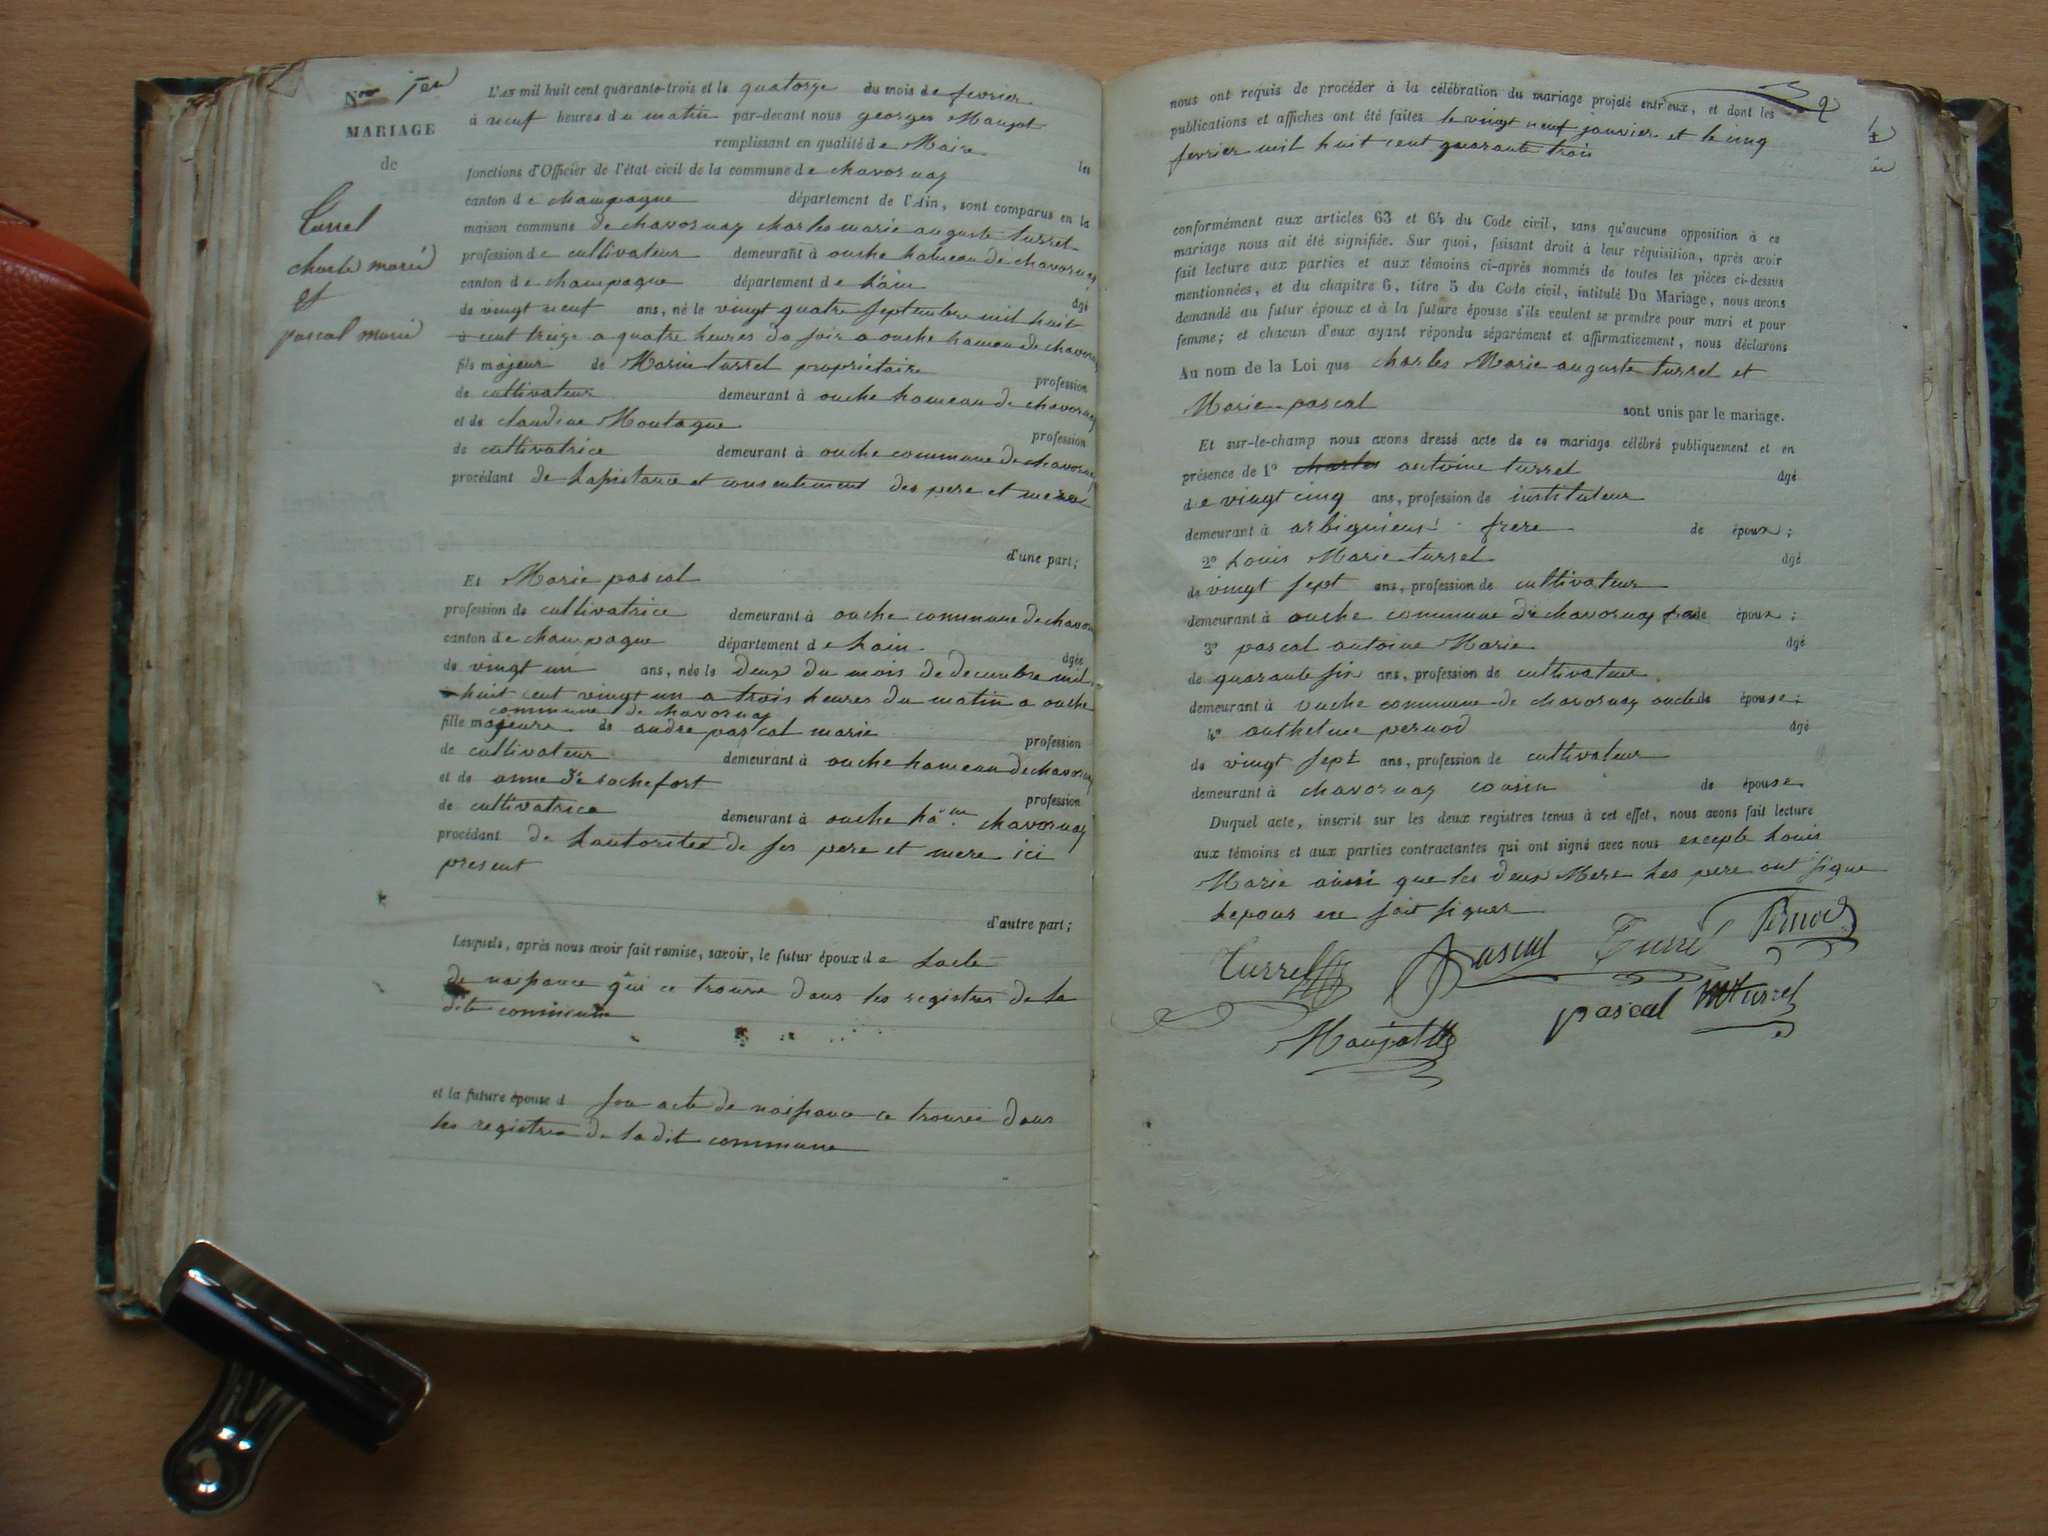 Nos 1er
MARIAGE
de
Turrel
charle marie
et
pascal marie
L'an mil huit cent quarante-trois et le quatorze du mois de fevrier
à neuf heures du matin par-devant nous georges Maujot
remplissant en qualité de Maire les
fonctions d'Officier de l'état civil de la commune de chavornay
canton de champagne département de l'Ain, sont comparus en la
maison commune de chavornay charles marie auguste turrel
profession de cultivateur demeurant à ouche hameau de chavornay
canton de champagne département de Lain âgé
de vingt neuf ans, né le vingt quatre septembre mil huit
cent treize a quatre heures du soir a ouche hameau de chavornay
fils majeur de Marin turrel propriétaire profession
de cultivateur demeurant à ouche hameau de chavornay
et de claudine Montagne profession
de cultivatrice demeurant à ouche commune de chavornay
procédant de Lapistance et consentement des pere et mere
d'une part;
Et Marie pascal
profession de cultivatrice demeurant à ouche commune de chavor
canton de champagne département de Lain âgée
de vingt un ans, née le deux du mois de decembre mil
huit cent vingt un a trois heures du matin a ouche
commune de chavornay
fille majeure de andre pascal marie profession
de cultivateur demeurant à ouche hameau de chavornay
et de anne de rochefort profession
de cultivatrice demeurant à ouche ham chavornay
procédant de Lautoritee de ses pere et mere ici
present
d'autre part;
Lesquels, après nous avoir fait remise, savoir, le futur époux de Lacte
de naissance qui ce trouve dans les registres de la
dite commune
et la future épouse d son acte de naissance ce trouvee dans
les registres de la dit commune
nous ont requis de procéder à la célébration du mariage projeté entr'eux, et dont les
publications et affiches ont été faites le vingt neuf janvier et le cinq
fevrier mil huit cent quarante trois
conformément aux articles 63 et 64 du Code civil, sans qu'aucune opposition à ce
mariage nous ait été signifiée. Sur quoi, faisant droit à leur réquisition, après avoir
fait lecture aux parties et aux témoins ci-après nommés de toutes les pièces ci-dessus
mentionnées, et du chapitre 6, titre 5 du Code civil, intitulé Du Mariage, nous avons
demandé au futur époux et à la future épouse s'ils veulent se prendre pour mari et pour
femme; et chacun d'eux ayant répondu séparément et affirmativement, nous déclarons
Au nom de la Loi que charles Marie auguste turrel et
Marie pascal sont unis par le mariage.
Et sur-le-champ nous avons dressé acte de ce mariage célébré publiquement et en
présence de 1° charles antoine turrel âgé
de vingt cinq ans, profession de instituteur
demeurant à arbignieus frere de époux;
2° Louis Marie turrel âgé
de vingt sept ans, profession de cultivateur
demeurant à ouche commune de chavornay de époux;
3° pascal antoine Marie âgé
de quarante six ans, profession de cultivateur
demeurant à ouche commune de chavornay oncle de épouse;
4° anthelme pernod âgé
de vingt sept ans, profession de cultivateur
demeurant à chavornay cousin de épouse
Duquel acte, inscrit sur les deux registres tenus à cet effet, nous avons fait lecture
aux témoins et aux parties contractantes qui ont signé avec nous excepte Louis
Marie ainsi que les deux Mere Les pere ont signe
Lepous en fait signer
Turrel Pascal Turrel Pernod
Maujot pascal Mturrel